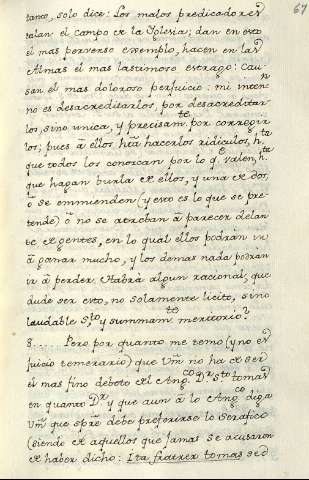 67
tanto, solo dice: Los malos predicadores
talan el campo de la Iglesia; dan en esto
el mas perverso exemplo, hacen en las
Almas el mas lastimoso estrago: Cau-
san el mas doloroso perjuicio: mi inten.n
no es desacreditarlos, por desacreditar
los, sino unica, y precisam.te por corregir
los; pues à ellos, hta hacerlos ridiculos, h.ta
que todos los conozcan por lo q.e valen, h.ta
que hagan burla de ellos, y una de dos,
ò se emmienden (y esto es lo que se pre-
tende) ò no se atreban à parecer delan
te de gentes, en lo qual ellos podràn ir
à ganar mucho, y los demas nada podràn
ir à perder. Habrà algun racional, que
dude ser esto, no solamente licito, sino
laudable S.to y summam.te meritorio?
8.... Pero por quanto me temo (y no es
juicio temerario) que Vm̃ no ha de ser
el mas fino deboto del Ang.co D.r S.to tomas
en quanto D.r y que aun à lo Ang.co diga
Vm̃ que spre debe preferirse lo Serafico
(siendo de aquellos que jamas se acusaron
de haber dicho: Ita fratrer tomas sed